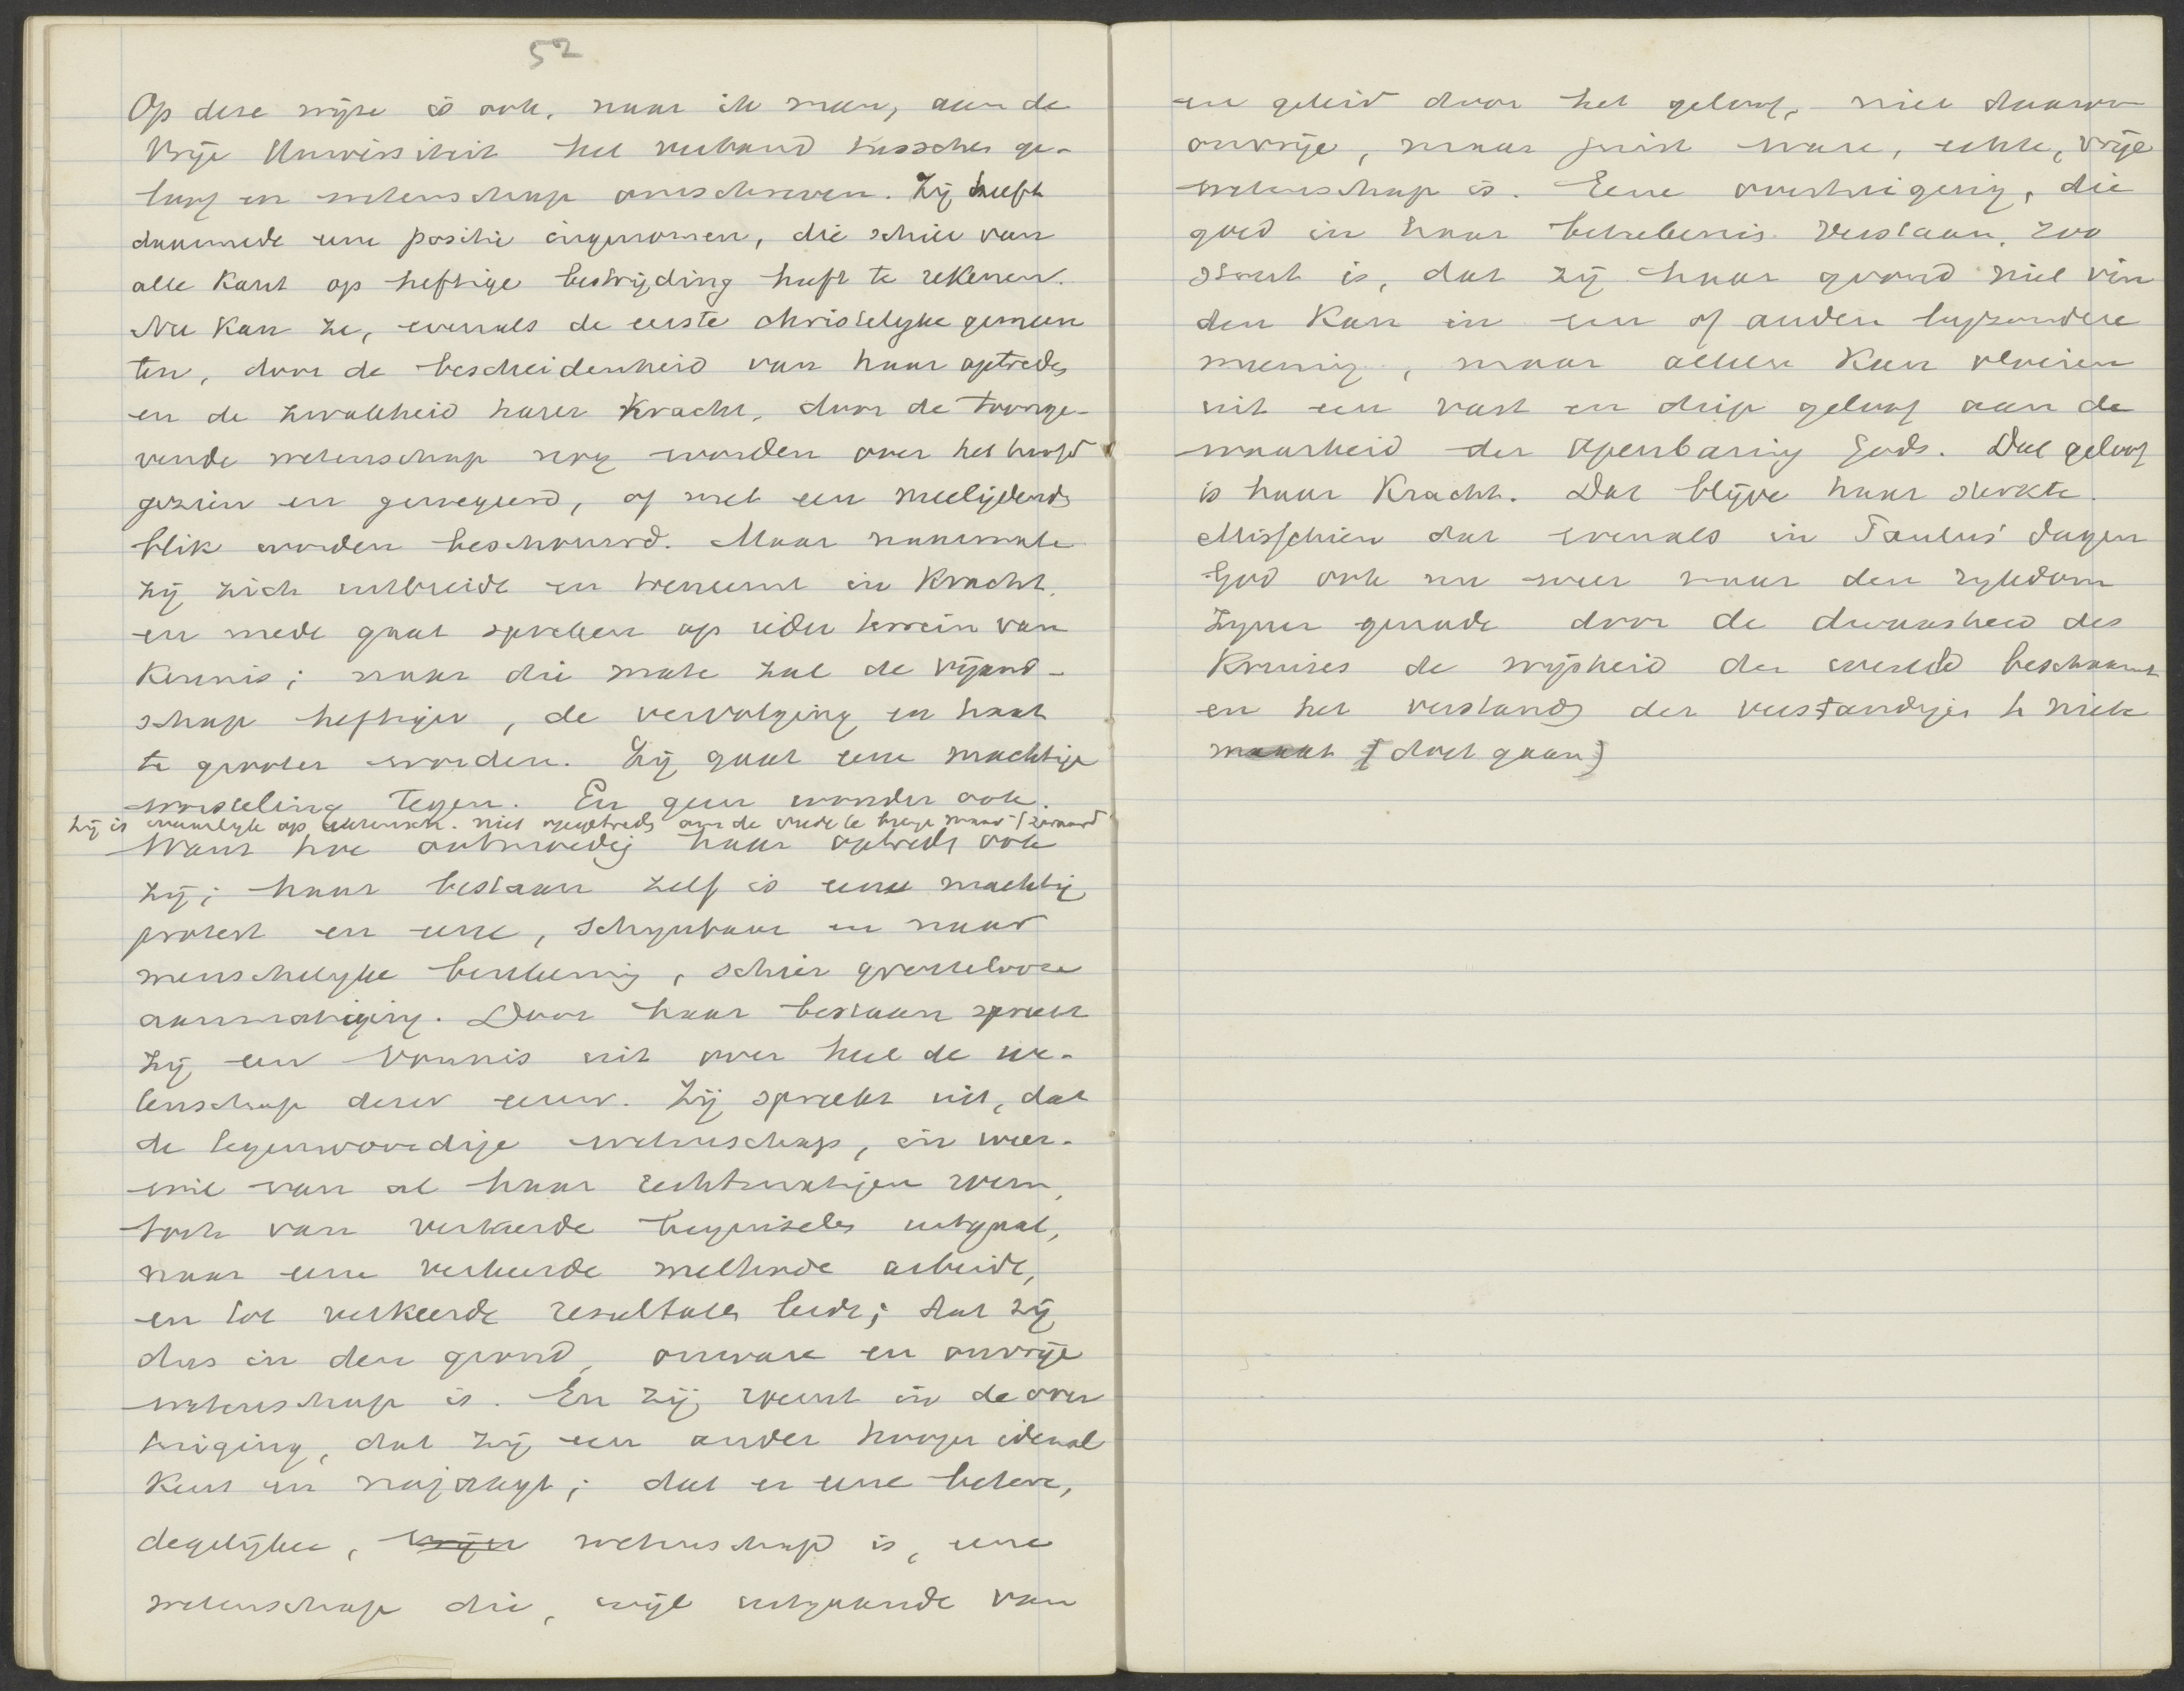 52
Op deze wijze is ook, naar ik meen, aan de
Vrije Universiteit het verband tusschen ge-
loof en wetenschap omschreven. Zij heeft
daarmede eene positie ingenomen, die schier van
alle kant op heftige bestrijding heeft te rekenen.
Nu kan ze, evenals de eerste christelyke gemeen
ten, door de bescheidenheid van haar optreden
en de zwakheid harer kracht, door de toonge-
vende wetenschap nog worden over het hoofd
gezien en genegeerd, of met een meelijdende
blik worden beschouwd. Maar naarmate
zij zich uitbreidt en toeneemt in kracht,
en mede gaat spreken op ieder terrein van
kennis; naar die mate zal de vijand-
schap heftiger, de vervolging en haat
te grooter worden. Zij gaat eene machtige
worsteling tegen. En geen wonder ook.
Zij is waarlyk op wetensch. niet opgetreden om de vrede te brengen maar 't zwaard
Want hoe ootmoedig haar optreden ook
zij; haar bestaan zelf is eene machtig
protest en eene, schynbaar en naar
menschelyke berekening, schier grenzelooze
aanmatiging. Door haar bestaan spreekt
zij een vonnis uit over heel de we-
tenschap dezer eeuw. Zij spreekt uit, dat
de tegenwoordige wetenschap, in weer-
wil van al haar rechtmatigen roem,
toch van verkeerde beginselen uitgaat,
naar eene verkeerde methode arbeidt,
en tot verkeerde resultaten leidt; dat zij
dus in den grond, onware en onvrije
wetenschap is. En zij roemt in de over
tuiging, dat zij een ander hooger ideaal
kent en najaagt; dat er eene betere,
degelijker, vrijer wetenschap is, eene
wetenschap die, wijl uitgaande van
en geleid door het geloof, niet daarom
onvrije, maar juist ware, echte, vrije
wetenschap is. Eene overtuiging, die
goed in haar beteekenis verstaan, zoo
stout is, dat zij haar grond niet vin
den kan in een of andere byzondere
meening, maar alleen kan vloeien
uit een vast en diep geloof aan de
waarheid der Openbaring Gods. Dat geloof
is haar kracht. Dat blijve haar sterkte.
Misschien dat evenals in Paulus' dagen
God ook nu weer naar den rykdom
Zyner genade door de dwaasheid des
Kruises de wijsheid der wereld beschaamt
en het verstand der verstandigen te niete
maakt [doet gaan]